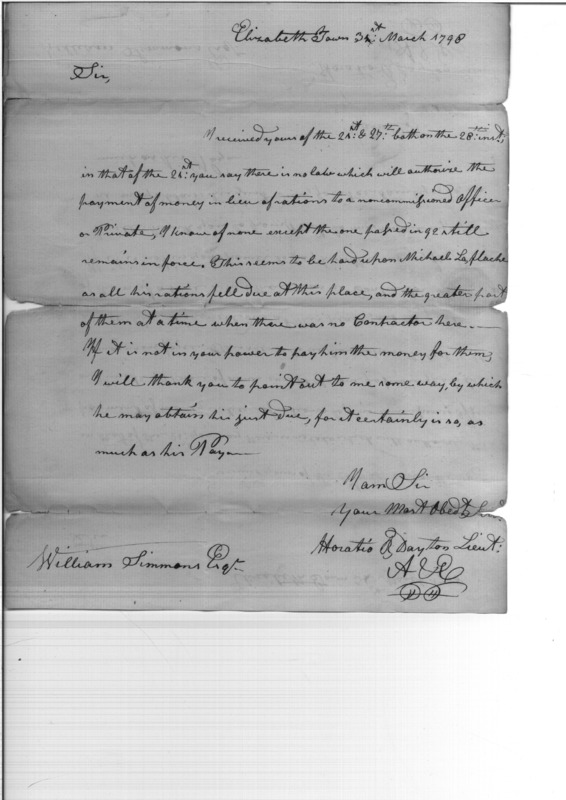 Elizabeth Town 31st March 1798
Sir,
I received yours of the 21st & 27th both on the 28th inst,
in that of the 21st you say there is no law which will authorize the
payment of money in lieu of rations to a noncommissioned Officer
or Private, I know of none except the one passed in 96 still
remains in force. This seems to be hard upon Michael Laflache
as all his rations fell due at this place, and the greater part
of them at a time when there was no Contractor here.—
If it is not in your power to pay him the money for them,
I will thank you to point out to me some way, by which
he may obtain his just due, for it certainly is so, as
much as his Pay—
I am Sir
Your Most Obedt Sert
Horatio R Dayton Lieut:
William Simmons Esqr.